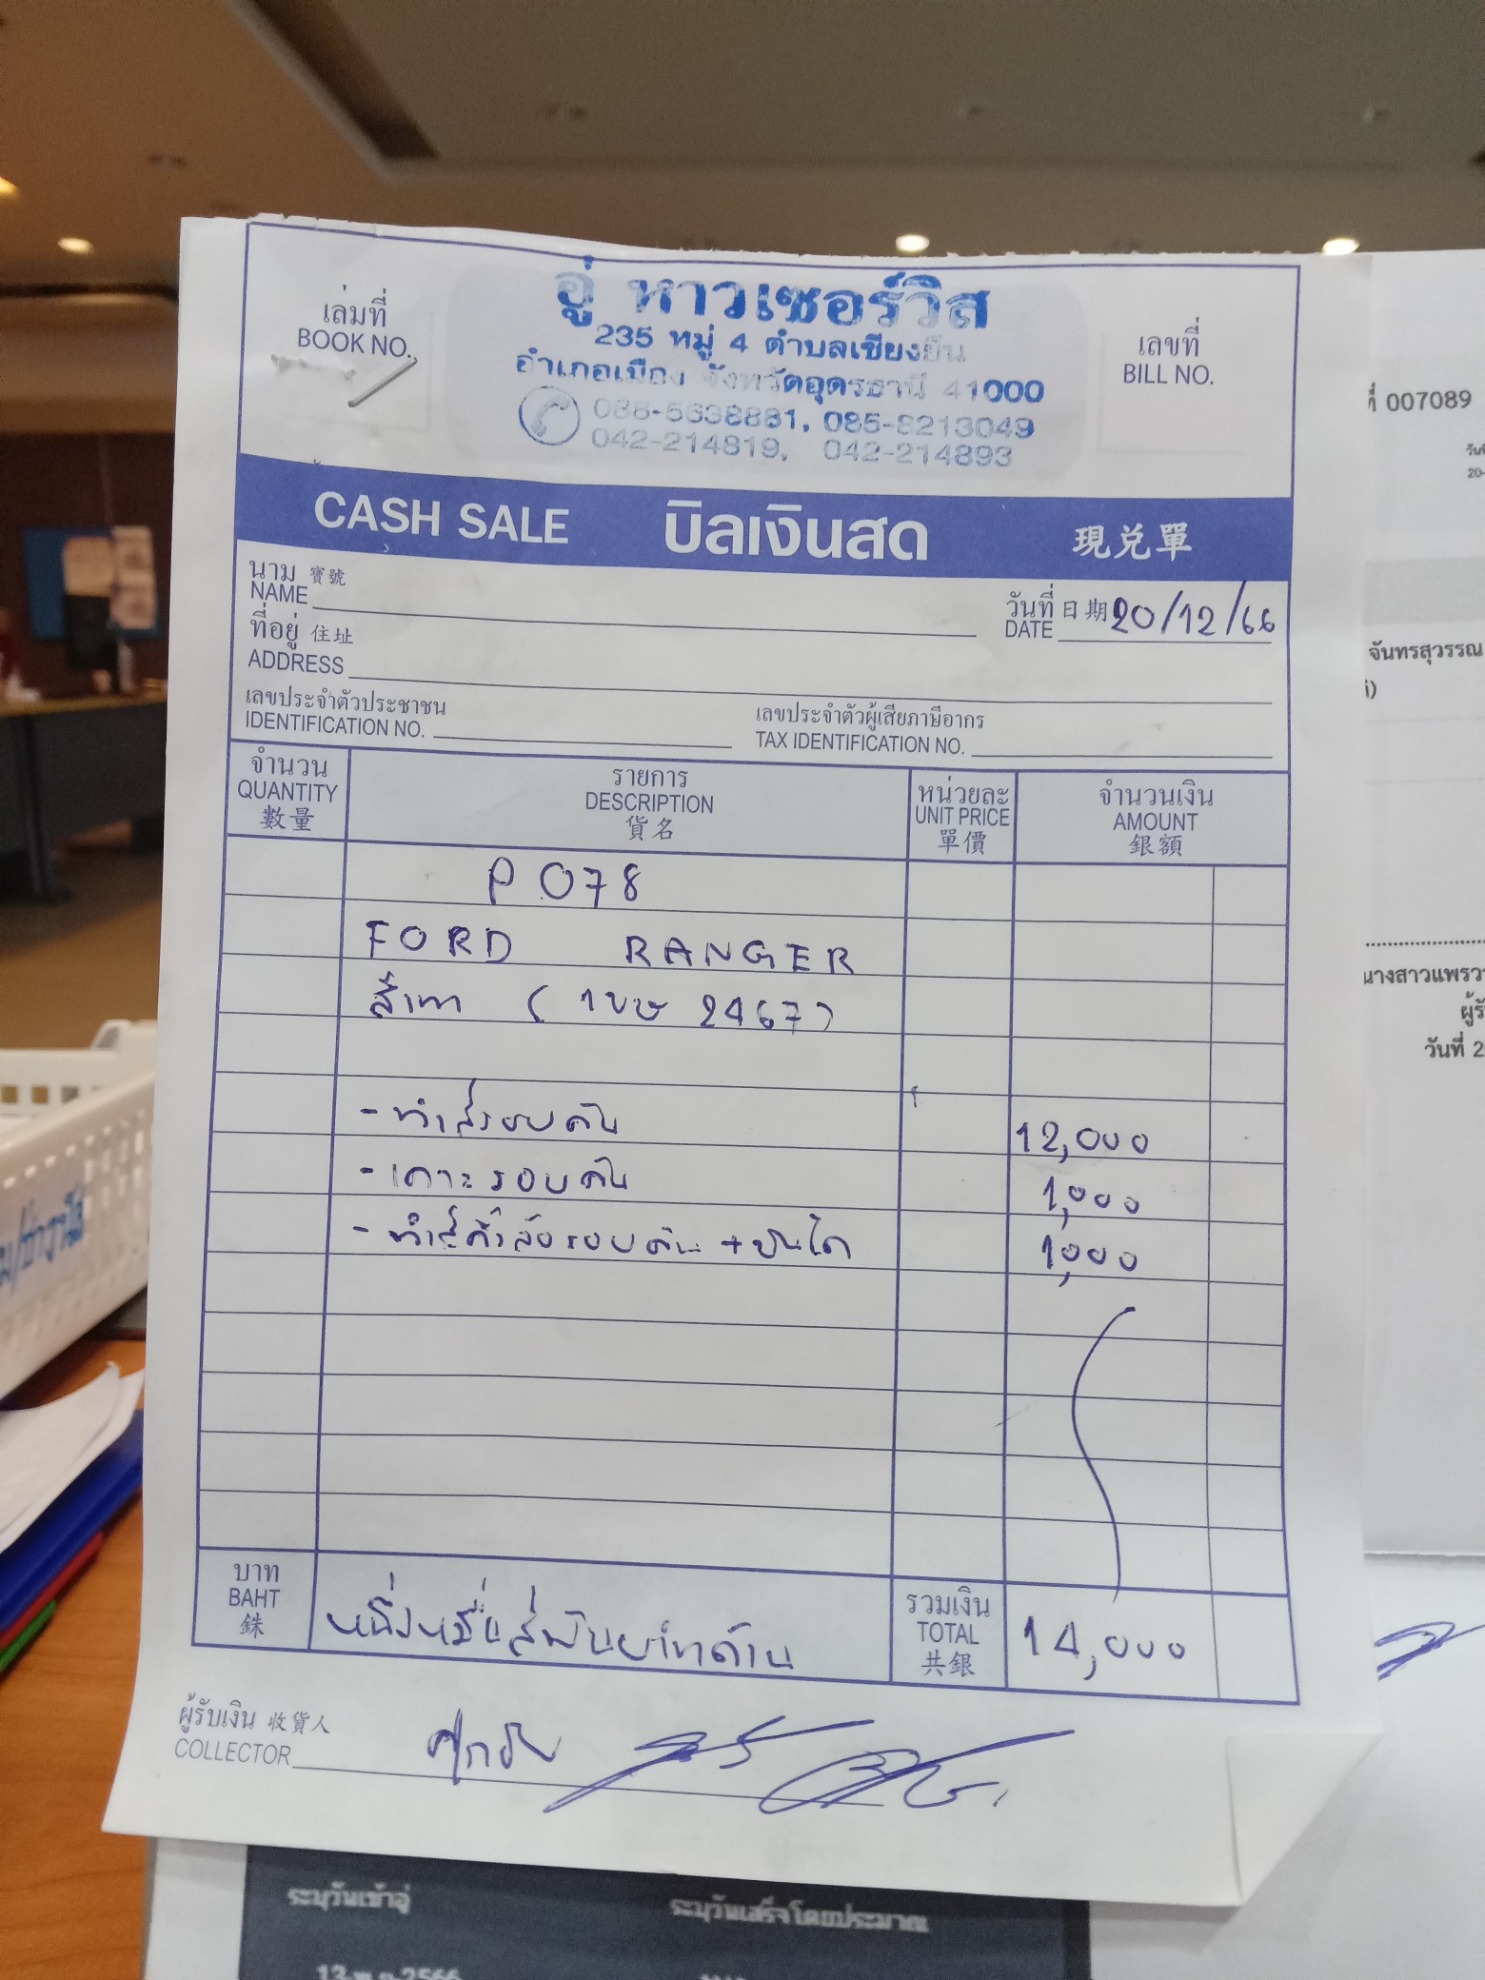 เล่มที่
BOOK NO.
อู่ หาวเซอร์วิส
235 หมู่ 4 ตำบลเชียงยืน
อำเภอเมือง จังหวัดอุดรธานี 41000
088-5638881, 085-8213049
042-214819, 042-214893
เลขที่
BILL NO.
ที่ 007089
CASH SALE บิลเงินสด 現兑單
นาม 寳號
NAME
วันที่ 日期 20/12/66
DATE
ที่อยู่ 住址
ADDRESS
จันทรสุวรรณ
เลขประจำตัวประชาชน
IDENTIFICATION NO.
เลขประจำตัวผู้เสียภาษีอากร
TAX IDENTIFICATION NO.
จำนวน รายการ หน่วยละ จำนวนเงิน
QUANTITY DESCRIPTION UNIT PRICE AMOUNT
數量 貨名 單價 銀額
P 078
FORD RANGER
สีเทา ( 1ขษ 2467)
- ทำสีรอบคัน 12,000
- เคาะรอบคัน 1,000
- ทำสีคิ้วล้อรอบคัน + บันได 1,000
นางสาวแพรว
วันที่ 2
บาท
BAHT
銖
หนึ่งหมื่นสี่พันบาทถ้วน
รวมเงิน
TOTAL
共銀
14,000
ผู้รับเงิน 收貨人
COLLECTOR
ระบุวันเข้าอู่ ระบุวันเสร็จโดยประมาณ